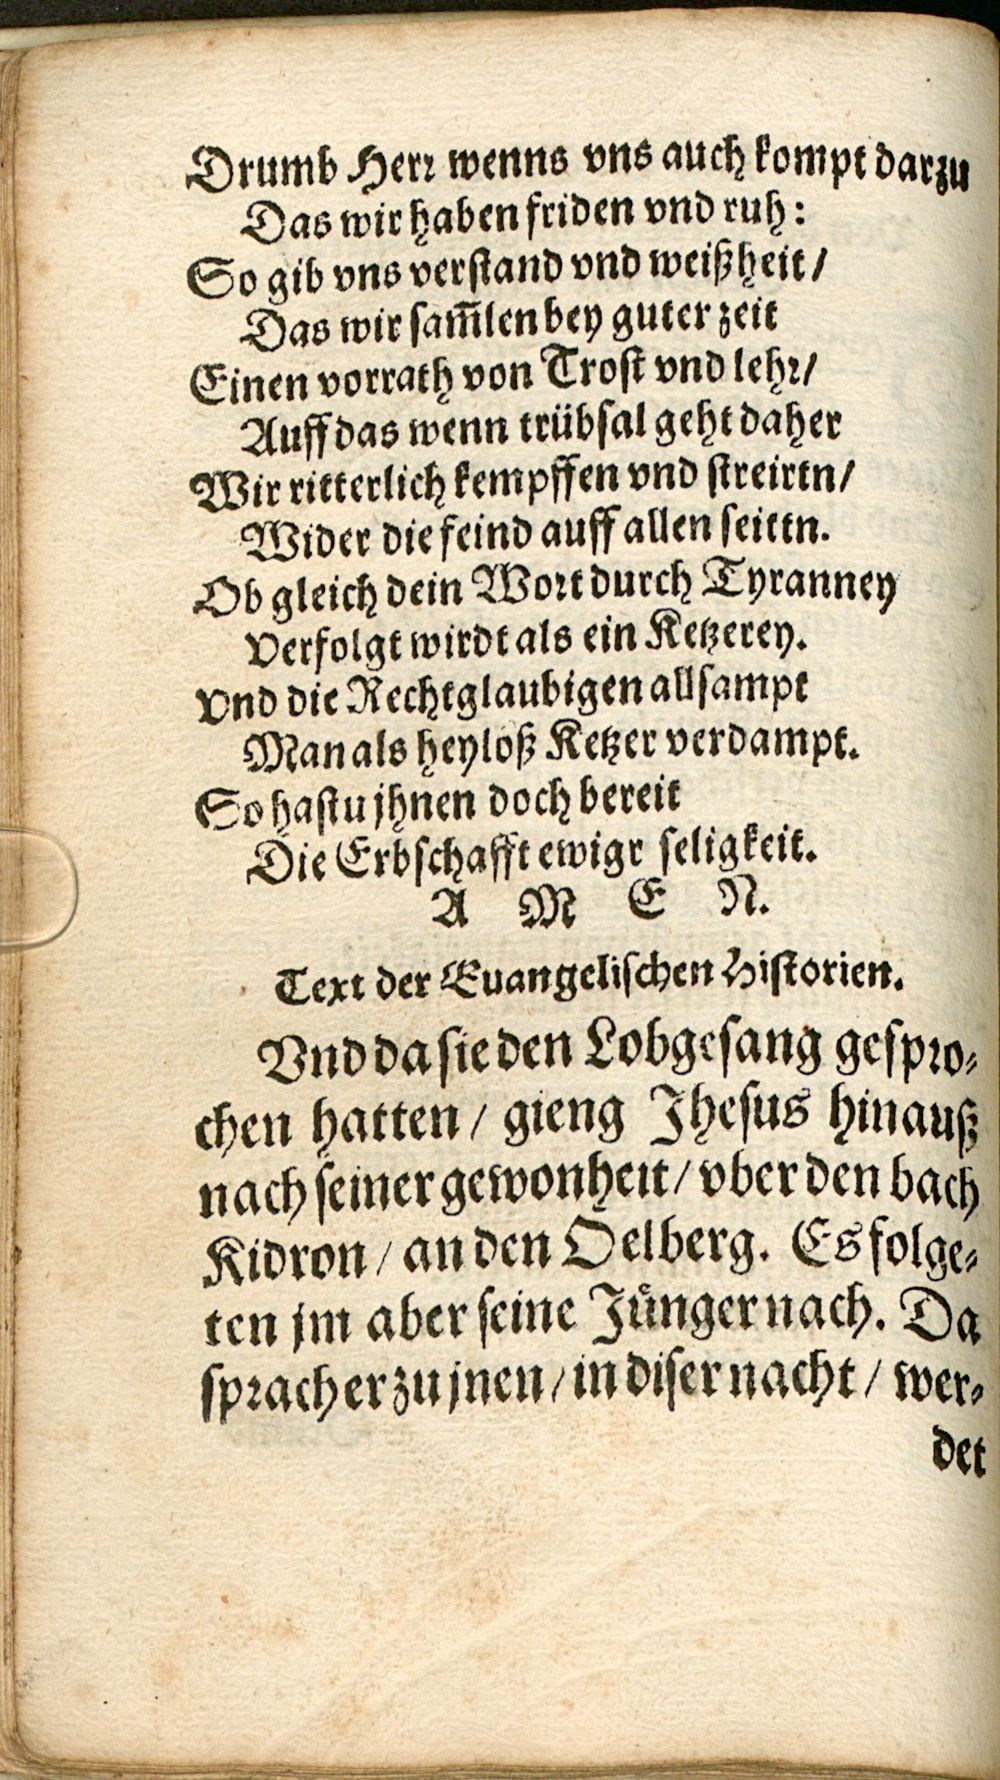 Drumb Herr wenns vns auch kompt darzu
Das wir haben friden vnd ruh:
So gib vns verstand vnd weißheit /
Das wir sam̃len bey guter zeit
Einen vorrath von Trost vnd lehr /
Auff das wenn trübsal geht daher
Wir ritterlich kempffen vnd streirtn /
Wider die feind auff allen seittn.
Ob gleich dein Wort durch Tyranney
Verfolgt wirdt als ein Ketzerey.
Vnd die Rechtglaubigen allsampt
Man als heyloß Ketzer verdampt.
So hastu jhnen doch bereit
Die Erbschafft ewigr seligkeit.
A M E N.
Text der Euangelischen Historien.
Vnd da sie den Lobgesang gespro-
chen hatten / gieng Jhesus hinauß
nach seiner gewonheit / vber den bach
Kidron / an den Oelberg. Es folge-
ten jm aber seine Jünger nach. Da
sprach er zu jnen / in diser nacht / wer-
det